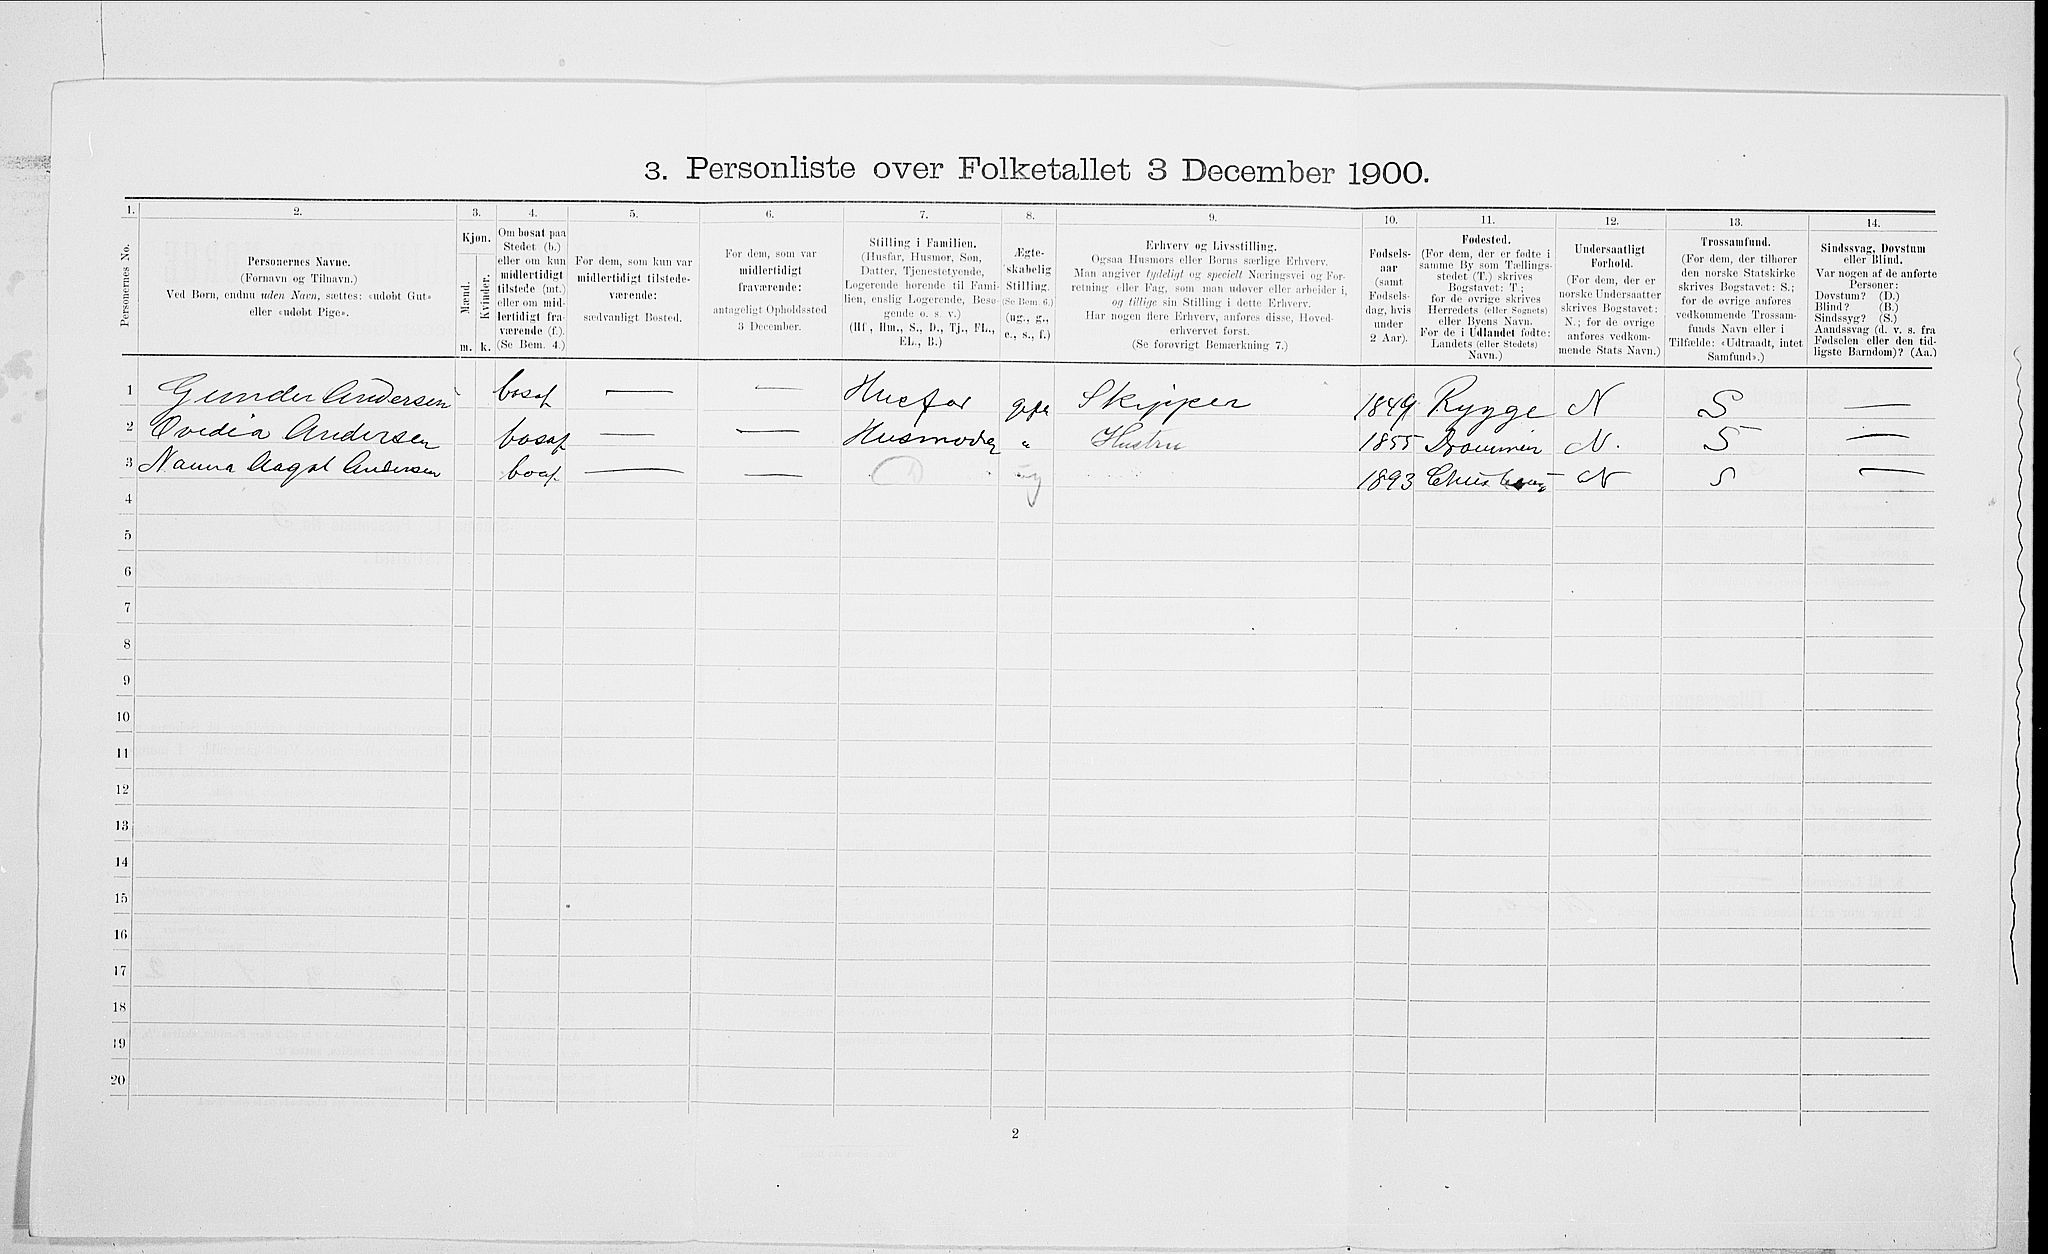 3. Personliste over Folketallet 3 December 1900.
1. 2. 3. 4. 5. 6. 7. 8. 9. 10. 11. 12. 13. 14.
Personernes No.
Personernes Navne.
(Fornavn og Tilnavn.)
Ved Børn, endnu uden Navn, sættes: «udøbt Gut»
eller «udøbt Pige».
Kjøn.
Mænd.
Kvinder.
m. k.
Om bosat paa
Stedet (b.)
eller om kun
midlertidigt
tilstede (mt.)
eller om mid-
lertidigt fra-
værende (f.).
(Se Bem. 4.)
For dem, som kun var
midlertidigt tilstede-
værende:
sædvanligt Bosted.
For dem, som var
midlertidigt
fraværende:
antageligt Opholdssted
3 December.
Stilling i Familien.
(Husfar, Husmor, Søn,
Datter, Tjenestetyende,
Logerende hørende til Fami-
lien, enslig Logerende, Besø-
gende o. s. v.)
(Hf., Hm., S., D., Tj., FL.,
EL., B.)
Ægte-
skabelig
Stilling.
(Se Bem. 6.)
(ug., g.,
e., s., f.)
Erhverv og Livsstilling.
Ogsaa Husmors eller Børns særlige Erhverv.
Man angiver tydeligt og specielt Næringsvei og For-
retning eller Fag, som man udøver eller arbeider i,
og tillige sin Stilling i dette Erhverv.
Har nogen flere Erhverv, anføres disse, Hoved-
erhvervet først.
(Se forøvrigt Bemærkning 7.)
Fødsels-
aar
(samt
Fødsels-
dag, hvis
under
2 Aar).
Fødested.
(For dem, der er fødte i
samme By som Tællings-
stedet (T.) skrives
Bogstavet: T.;
for de øvrige skrives
Herredets (eller Sognets)
eller Byens Navn.
For de i Udlandet fødte:
Landets (eller Stedets)
Navn.)
Undersaatligt
Forhold.
(For dem, der er
norske Undersaatter
skrives Bogstavet:
N.; for de øvrige
anføres vedkom-
mende Stats Navn.)
Trossamfund.
(For dem, der tilhører
den norske Statskirke
skrives Bogstavet: S.;
for de øvrige anføres
vedkommende Trossam-
funds Navn eller i
Tilfælde: «Udtraadt, intet
Samfund».)
Sindssvag, Døvstum
eller Blind.
Var nogen af de anførte
Personer:
Døvstum? (D.)
Blind? (B.)
Sindssyg? (S.)
Aandssvag (d. v. s. fra
Fødselen eller den tid-
ligste Barndom)? (Aa.)
1 Gunder Andersen bosat — — Husfar gift Skipper 1849 Rygge N S —
2 Ovidia Andersen bosat — — Husmoder " Hustru 1855 Drammen N. S —
3 Nanna Aagot Andersen bosat — — D ug 1893 N S —
4
5
6
7
8
9
10
11
12
13
14
15
16
17
18
19
20
2